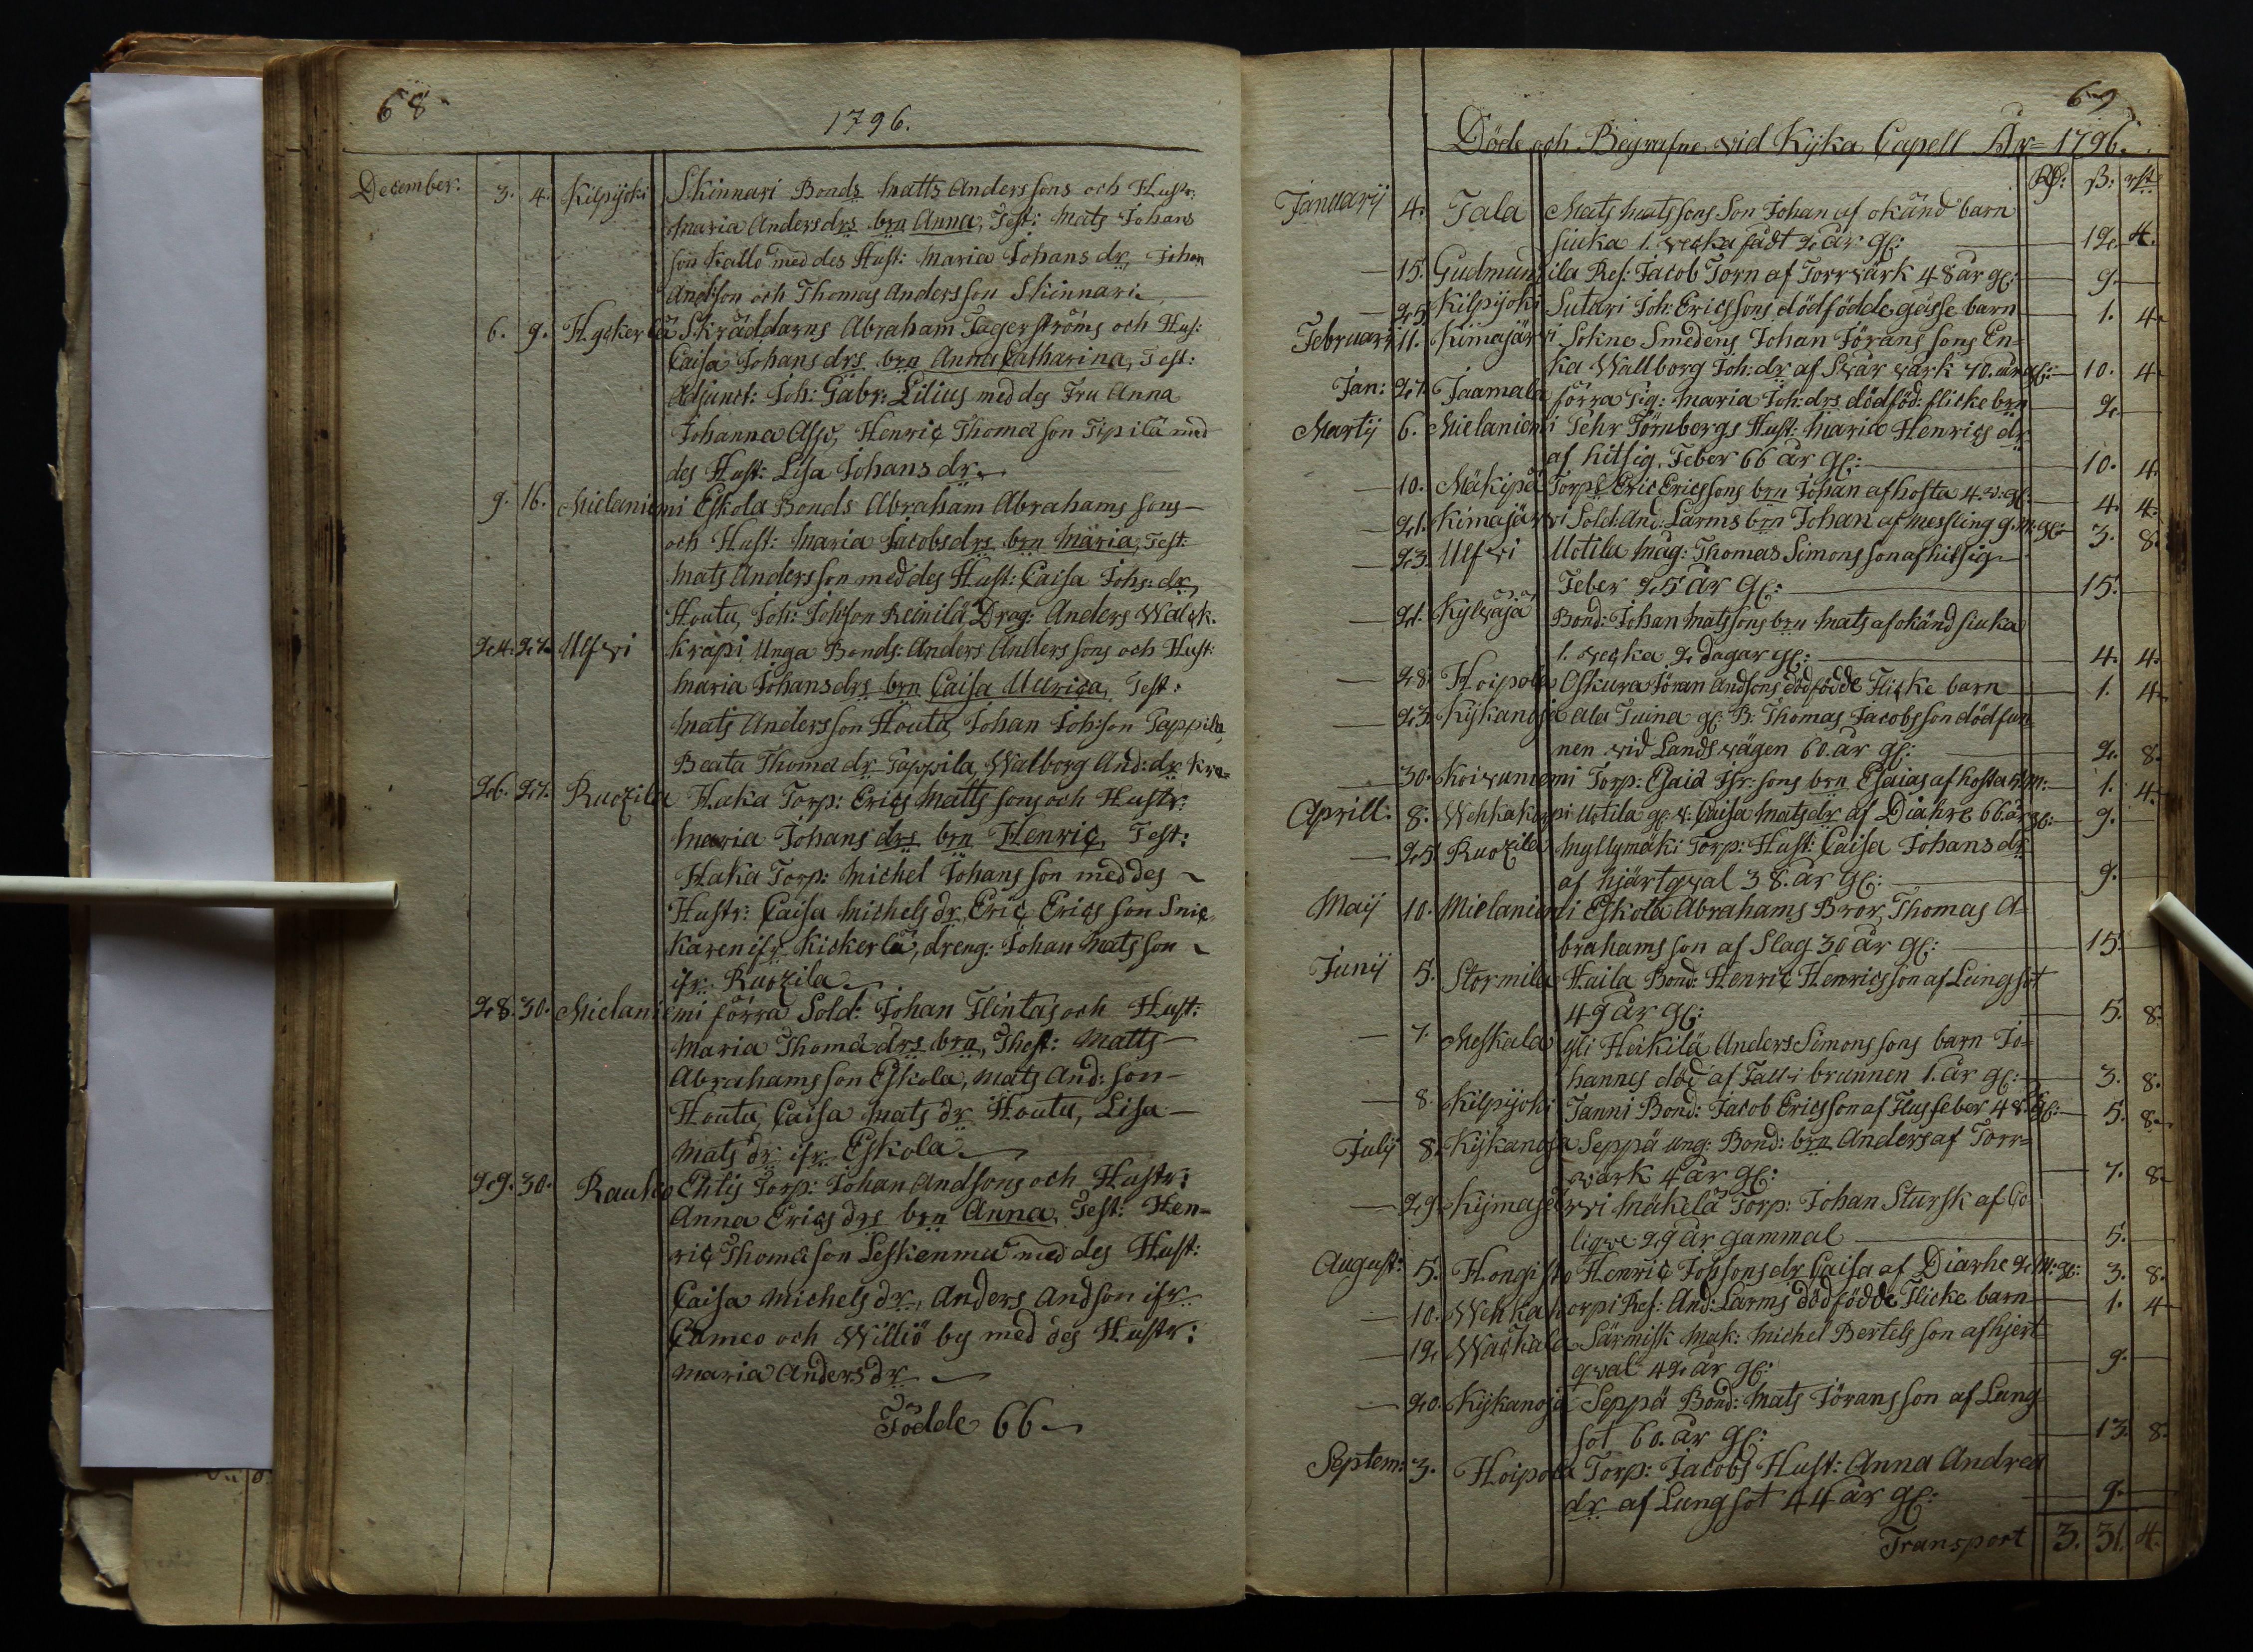 68
1796.
December. 3. 4. Kilpijoki Skinnari Bonds Matts Anderssons och Hustr:
Maria Andersdrs brn Anna, Test: Mats Johans
son Kallo med des Hust: Maria Johans dr, Johan
Andsson och Thomas Andersson Skinnari
6. 9. Skräddarns Abraham Jagerströms och Hus:
Caisa Johans drs brn Anna Catharina, Test:
Adjunct: Joh: Gabr: Lilius med des Fru Anna
Johanna Henric Thomasson Tipilä med
des Hust: Lisa Johans dr
9. 16. Mielaniemi Eskola Bonds Abraham Abrahams sons
och Hust: Maria Jacobsdrs brn Maria, Test:
Mats Andersson med des Hust: Caisa Johs: dr,
Houtu, Joh: Johsson Reinilä, Drag: Anders Walck.
24. 27. Ulfwi Krapi Unga Bonds: Anders Anderssons och Hust:
Maria Johansdrs brn Caisa Ullrica, Test:
Mats Andersson Houtu, Johan Johsson Tappila,
Beata Thomadr Tappila, Walborg And: dr Kra-
26. 27. Ruozila Haka Torp: Erics Matts sons och Hustr:
Maria Johans drs brn Henric, Test:
Haka Torp: Michel Johansson med des
Hustr: Caisa Michels dr, Eric Ericsson Snic
karen ifr Kickerlä, dreng: Johan Matsson
ifr: Ruozila
28. 30. Mielaniemi förra Sold: Johan Flintas och Hust:
Maria Thoma drs brn, Thest: Matts
Abrahamsson Eskola, Mats And: son
Houtu, Caisa Mats dr Houtu, Lisa
Mats dr ifr Eskola
29. 30. Raukio Ehtis Torp: Johan Andsons och Hustr:
Anna Erics drs brn Anna, Test: Hen-
ric Thomasson Leskenmu med des Hust:
Caisa Michels dr, Anders Andson ifr
Cameo och Williö by med des Hustr:
Maria Anders dr
Födde 66
69
Döde och Begrafne vid Kijka Capell År 1796.
Rd: ß: rst
Januarij 4. Tala Mats Matssons Son Johan af okänd barn
siuka 1. vecka fådt 2 år gl: 12. 4.
15. Gudmundila Ref: Jacob Torn af Torrvärk 48 år gl: 9.
25. Kilpijoki Sutari Joh: Ericssons dödfödde gåsse barn 1. 4.
Februarii 11. Kiimajärwi Sokne Smedens Johan Jörans sons En-
ka Wallborg Joh: dr af Swår värk 70. år gl: 10. 4.
Jan: 27. Jaamala förra Pig: Maria Joh: drs dödföd: flicke brn 2.
Martij 6. Mielaniemi Pehr Törnbergs Hust: Maria Henrics dr
af hitsig Feber 66 år gl: 10. 4.
10. Mäkipä Torps Eric Ericssons brn Johan af hosta 4. v: gl: 4. 4.
21. Kimajärwi Sold: And: Larms brn Johan af Messling 9. m: gl: 3. 8.
23. Ulfwi Uotila Måg: Thomas Simonsson af hitsig
Feber 25 år gl: 15.
21. Kylwäjä Bond: Johan Matssons brn Mats af okänd siuka
1. vecka 2 dagar gl: 4. 4.
28. Hoipola Oskura Jöran Andsons dödfödde Flicke barn 1. 4.
23. Kijkanoja Ala Tuina gl: B: Thomas Jacobsson död fun-
nen vid Lands vägen 60. år gl: 2. 8.
30. Koivuniemi Torp: Esaia Isr: sons brn Esaias af hosta 1. 4.
Aprill: 8. Wehkakorpi Uotila gl: E: Caisa Matsdr af Diahre 66. år gl: 9.
25. Ruozila Myllymäki Torp: Hust: Caisa Johans dr
af hjärtqval 38. år gl: 9.
Maij 10. Mielaniemi Eskola Abrahams Bror Thomas A-
brahamsson af Slag 30 år gl: 15.
Junij 5. Stormila Haila Bond: Henric Henricsson af Lungsot
49 år gl: 5. 8.
7. Meskala yli Heikilä Anders Simonssons barn Jo-
hannes död af Fall i brunnen 1. år gl: 3. 8.
8. Kilpijoki Janni Bond: Jacob Ericsson af Flussfeber 48. gl: 5. 8.
Julij 8. Kijkanoja Seppä ung: Bond: brn Anders af Torr-
wärk 4 år gl: 7. 8.
29. Kijmajärwi Mäkelä Torp: Johan Stursk af Co
liqve 29 år gammal 5.
August: 5. Hongisto Henric Johsons dr Caisa af Diarhe 2. M: gl: 3. 8.
10. Wehkakorpi Ref: And: Larms dödfödde Flicke barn 1. 4
12. Wackala Särmisk Mak: Michel Bertelsson af hjert
qwal 42 år gl: 9.
20. Kijkanoja Seppä Bond: Mats Jöransson af Lung
sot 60. år gl: 13. 8.
Septem: 3. Hoipola Torp: Jacobs Hust: Anna Andrea
dr af Lungsot 44 år gl: 9.
Transport 3. 31. 4.